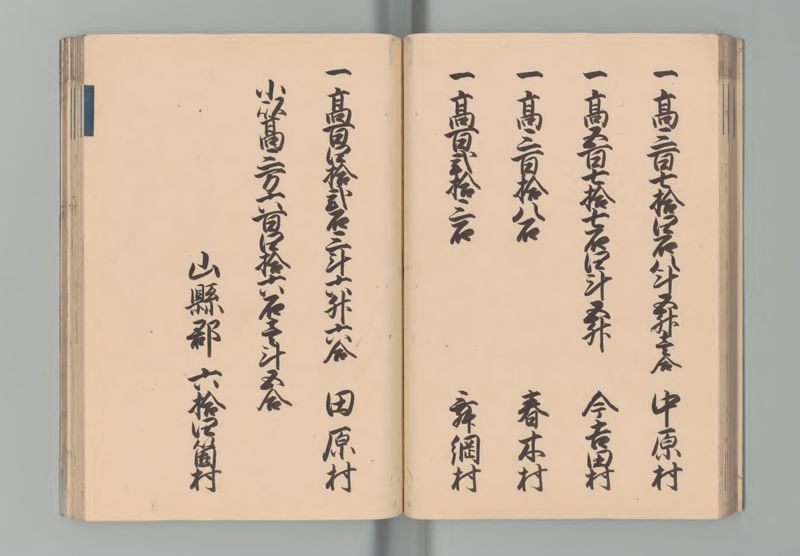 一高三百七拾四石八斗五升壱合 中原村
一高五百七拾七石四斗五升 今吉田村
一高三百拾八石 春木村
一高百弐拾三石 舞綱村
一高百四拾弐石三斗六升六合 田原村
小以高三万六百四拾六石壱斗五合
山縣郡 六拾四箇村